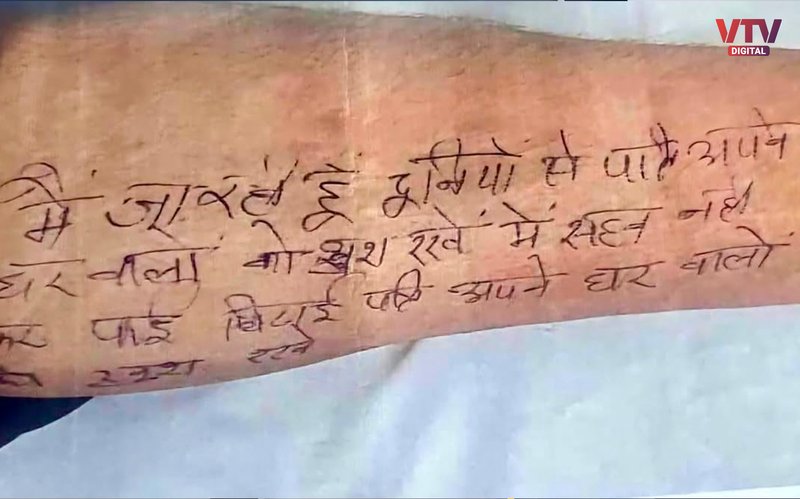 VTV
DIGITAL
मैं जा रही हूँ दुनियाँ से पति अपने
घर वालों को खुश रखें में सहन नही
कर पाई पिटाई पति अपने घर वालों
खुश रखे